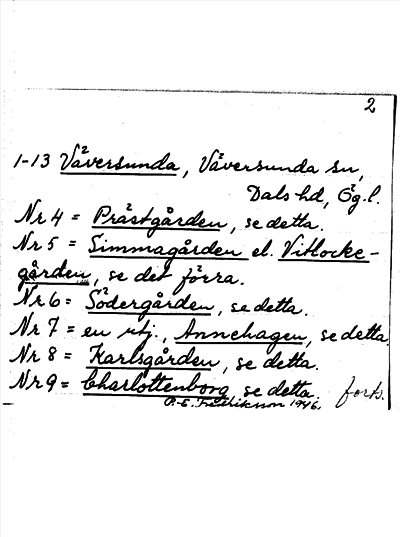 2
1-13 Väversunda, Väversunda sn,
Dals hd, Ög.l.
Nr 4 = Prästgården, se detta.
Nr 5 = Simmagården el. Vitlocke-
gården, se det förra.
Nr 6 = Södergården, se detta.
Nr 7 = en utj., Annehagen, se detta.
Nr 8 = Karlsgården, se detta.
Nr 9 = Charlottenborg se detta. forts.
P.-E. Fredriksson 1946.